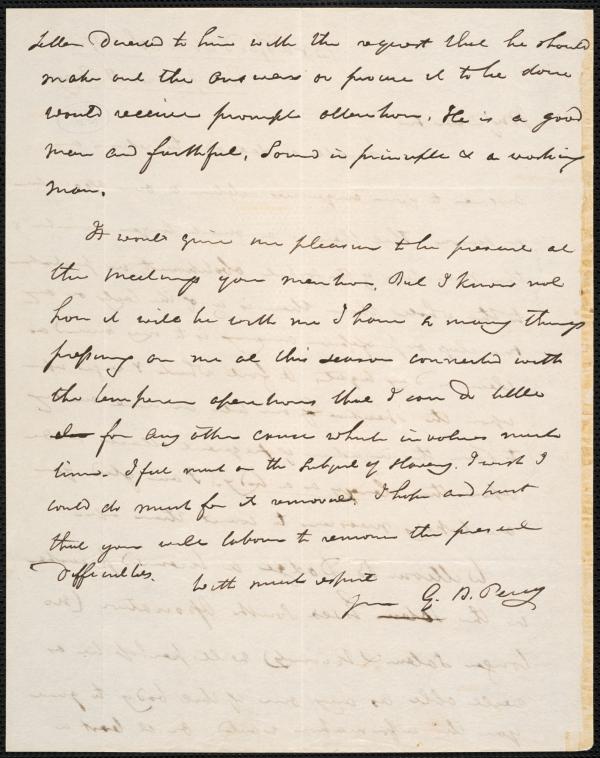 Letter Directed to him with the request that he should
make out the answers or procure it to be done
would receive prompt attention. He is a good
man and faithful, Sound in principle & a working
man.
It would give me pleasure to be present at
the meetings you mention. But I know not
how it will be with me I have so many things
pressing on me at this season connected with
the temperance operations that I can do little
for any other cause which involves much
time. I feel much on the Subject of Slavery. I wish I
could do much for its removal. I hope and trust
that you will labour to remove the present
Difficulties.
With much respect
yours G. B. Perry